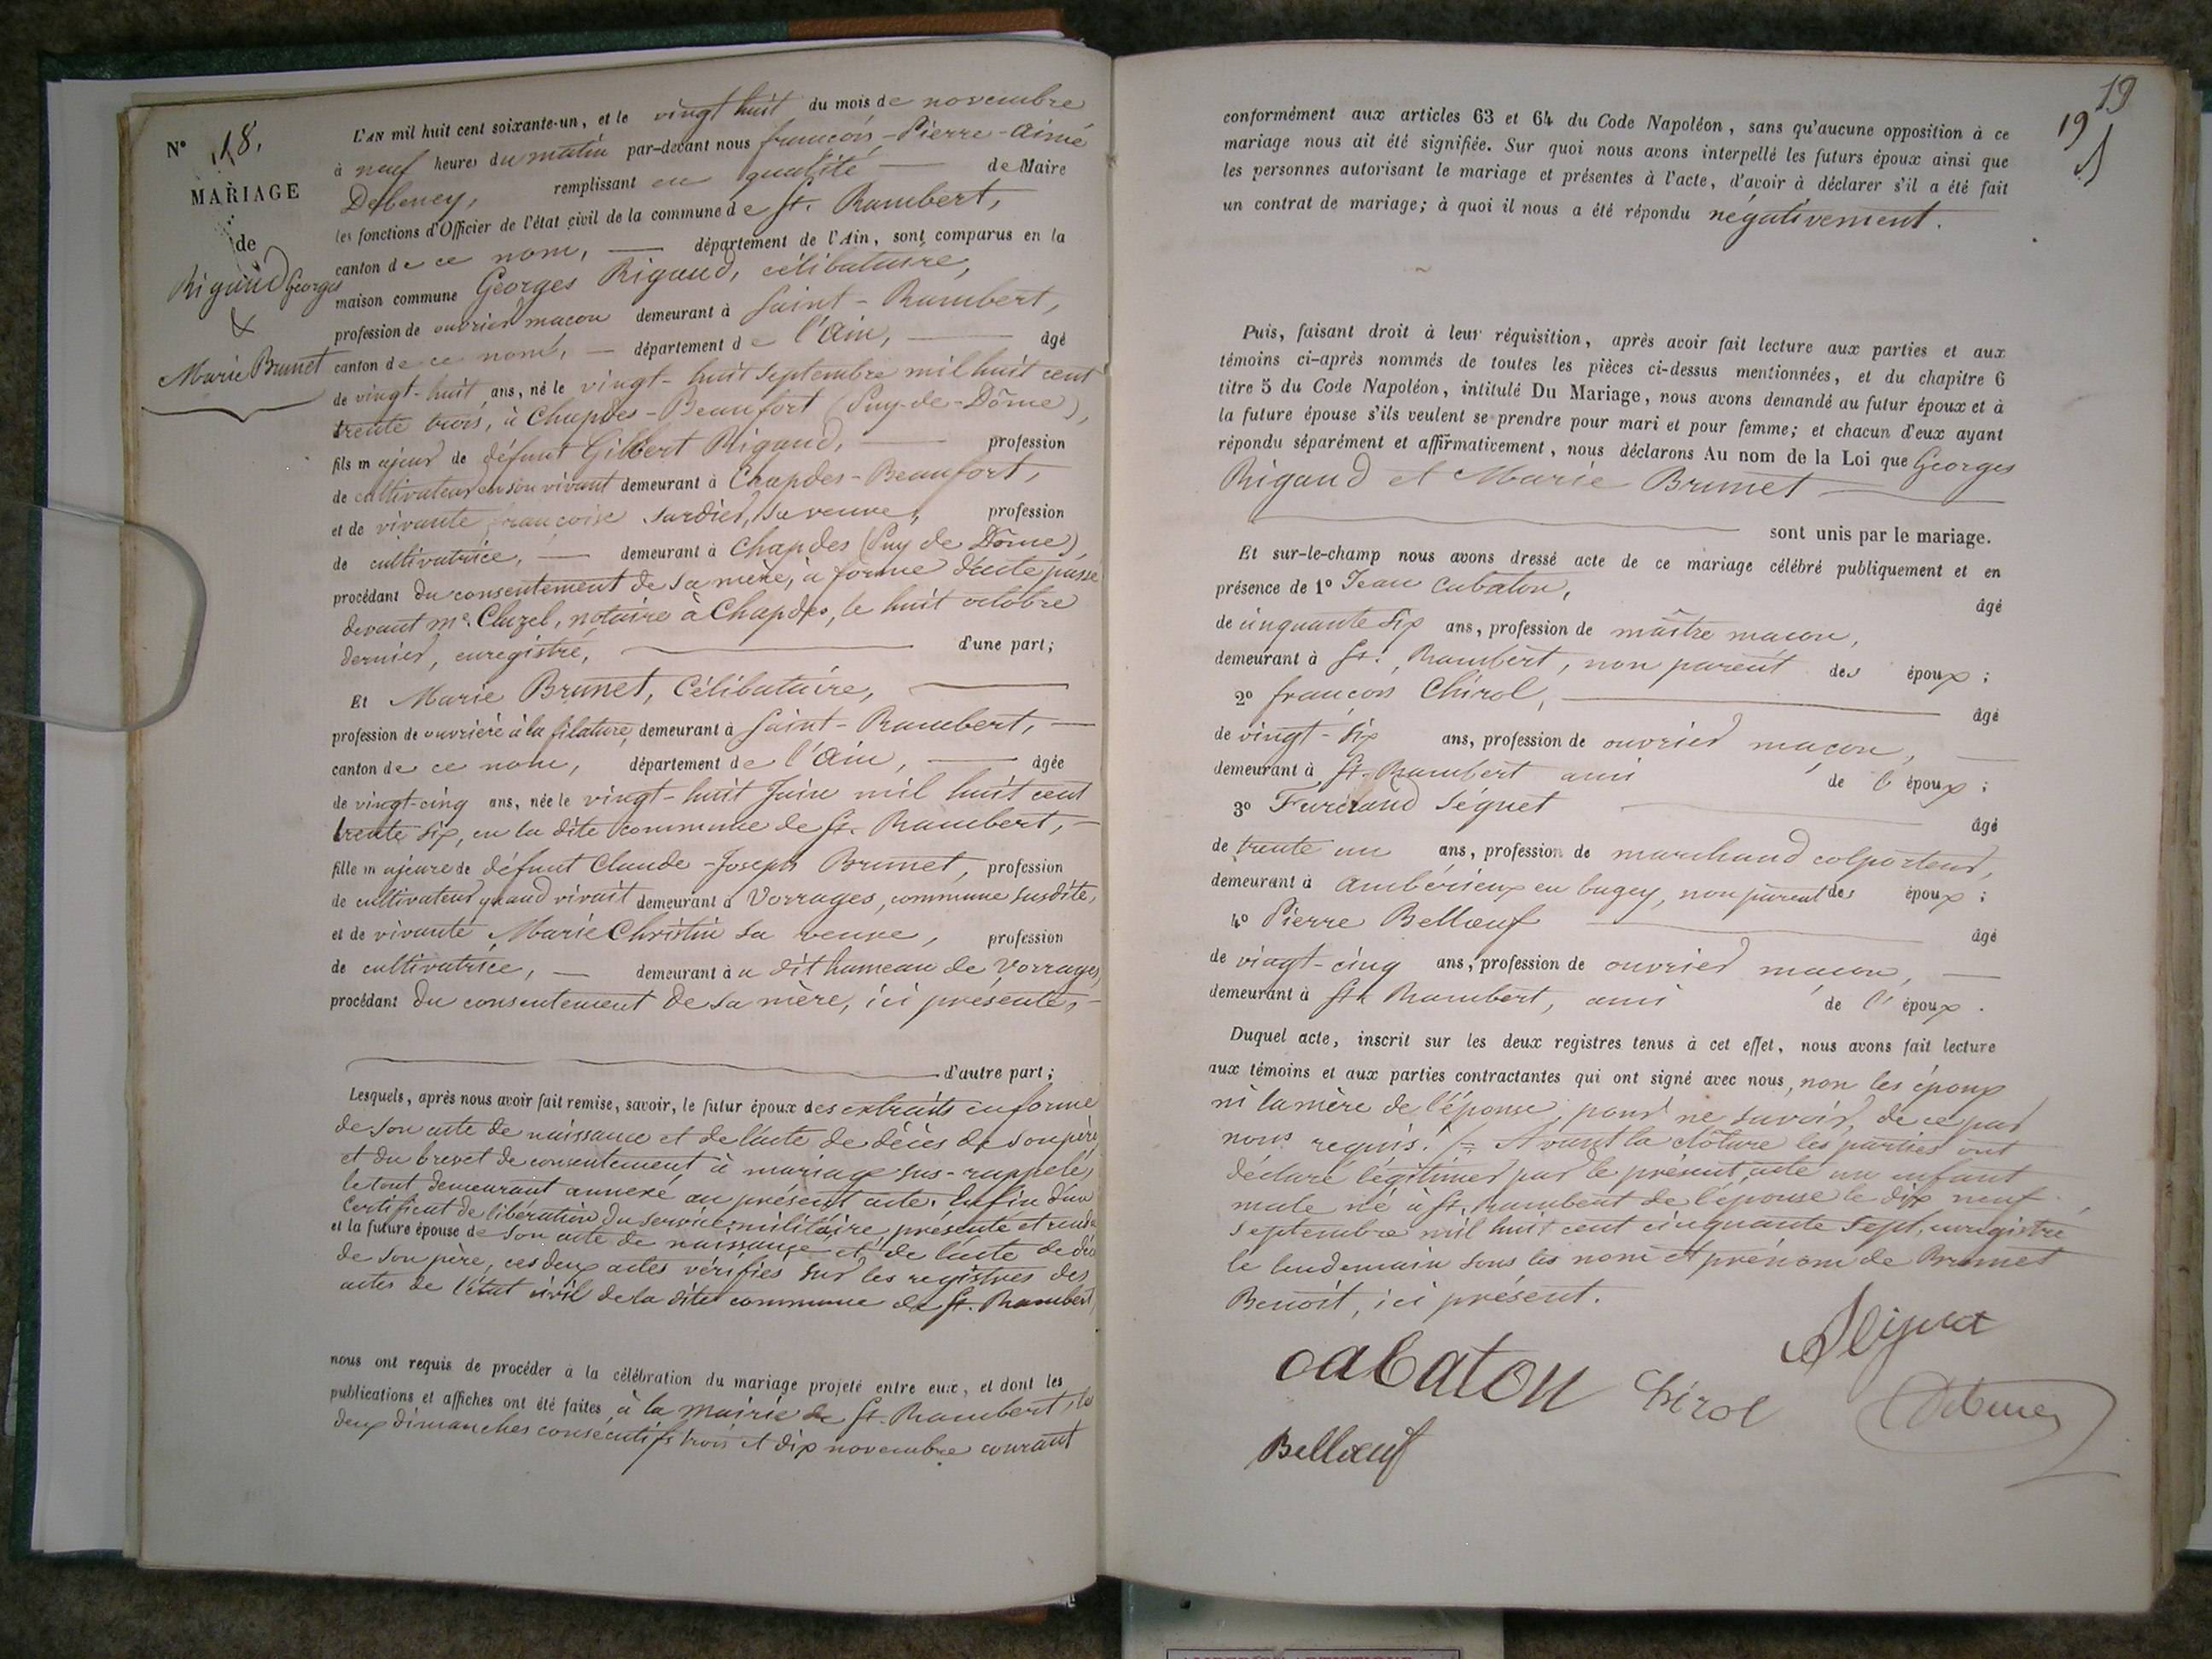 N° 18.
MARIAGE
de
Rigaud Georges
&
Marie Brunet
L'AN mil huit cent soixante-un, et le vingt huit du mois de novembre
à neuf heures du matin par-devant nous françois-Pierre-Aimé
Debeney, remplissant en qualité de Maire
les fonctions d'Officier de l'état civil de la commune de St. Rambert,
canton de ce nom, département de l'Ain, sont comparus en la
maison commune Georges Rigaud, célibataire,
profession de ouvrier macon demeurant à Saint-Rambert,
canton de ce nom, département de l'Ain, âgé
de vingt-huit ans, né le vingt-huit septembre mil huit cent
trente trois, à Chapdes-Beaufort (Puy-de-Dôme),
fils majeur de défunt Gilbert Rigaud, profession
de cultivateur en son vivant demeurant à Chapdes-Beaufort,
et de vivante françoise sa veuve, profession
de cultivatrice, demeurant à Chapdes (Puy de Dôme),
procédant du consentement de sa mère, à forme d'acte passé
devant me. Cluzel, notaire à Chapdes, le huit octobre
dernier, enregistré, d'une part;
Et Marie Brunet, Célibataire,
profession de ouvrière à la filature, demeurant à Saint-Rambert,
canton de ce nom, département de l'Ain, âgée
de vingt-cinq ans, née le vingt-huit Juin mil huit cent
trente six, en la dite commune de St. Rambert,
fille majeure de défunt Claude-Joseph Brunet, profession
de cultivateur quand vivait demeurant à Vorrages, commune susdite,
et de vivante Marie Christin sa veuve, profession
de cultivatrice, demeurant au dit hameau de Vorrages,
procédant du consentement de sa mère, ici présente,
d'autre part;
Lesquels, après nous avoir fait remise, savoir, le futur époux des extraits en forme
de son acte de naissance et de l'acte de décès de son père,
et du brevet de consentement à mariage sus-rappelé,
le tout demeurant annexé au présent acte. Enfin d'un
Certificat de libération du service militaire, présenté et rendu
et la future épouse de son acte de naissance et de l'acte de décès
de son père, ces deux actes vérifiés sur les registres des
actes de l'état civil de la dite commune de St. Rambert,
nous ont requis de procéder à la célébration du mariage projeté entre eux, et dont les
publications et affiches ont été faites à la mairie de St. Rambert, les
deux dimanches consécutifs trois et dix novembre courant
19
19
conformément aux articles 63 et 64 du Code Napoléon, sans qu'aucune opposition à ce
mariage nous ait été signifiée. Sur quoi nous avons interpellé les futurs époux ainsi que
les personnes autorisant le mariage et présentes à l'acte, d'avoir à déclarer s'il a été fait
un contrat de mariage; à quoi il nous a été répondu négativement.
Puis, faisant droit à leur réquisition, après avoir fait lecture aux parties et aux
témoins ci-après nommés de toutes les pièces ci-dessus mentionnées, et du chapitre 6
titre 5 du Code Napoléon, intitulé Du Mariage, nous avons demandé au futur époux et à
la future épouse s'ils veulent se prendre pour mari et pour femme; et chacun d'eux ayant
répondu séparément et affirmativement, nous déclarons Au nom de la Loi que Georges
Rigaud et Marie Brunet
sont unis par le mariage.
Et sur-le-champ nous avons dressé acte de ce mariage célébré publiquement et en
présence de 1° Jean Cabaton, âgé
de cinquante six ans, profession de maître macon,
demeurant à St. Rambert, non parent des époux;
2° françois Chirol, âgé
de vingt-six ans, profession de ouvrier maçon,
demeurant à St. Rambert ami de l'époux;
3° Séguet âgé
de trente un ans, profession de marchand colporteur,
demeurant à Ambérieux en bugey, non parent des époux;
4° Pierre Bellœuf âgé
de vingt-cinq ans, profession de ouvrier maçon,
demeurant à St. Rambert, ami de l'époux.
Duquel acte, inscrit sur les deux registres tenus à cet effet, nous avons fait lecture
aux témoins et aux parties contractantes qui ont signé avec nous, non les époux
ni la mère de l'épouse, pour ne savoir, de ce par
nous requis. Avant la clôture les parties ont
déclaré légitimer par le présent acte un enfant
male né à St. Rambert de l'épouse le dix neuf
septembre mil huit cent cinquante sept, enregistré
le lendemain sous les nom et prénom de Brunet
Benoît, ici présent.
Cabaton Chirol
Debeney
Bellœuf